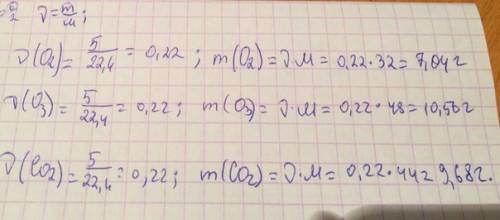 ν = m/M;
ν(O₂) = 5/22,4 = 0,22 ; m(O₂) = ν·M = 0,22·32 = 7,04г
ν(O₃) = 5/22,4 = 0,22; m(O₃) = ν·M = 0,22·48 = 10,56г
ν(CO₂) = 5/22,4 = 0,22; m(CO₂) = ν·M = 0,22·44 = 9,68г.